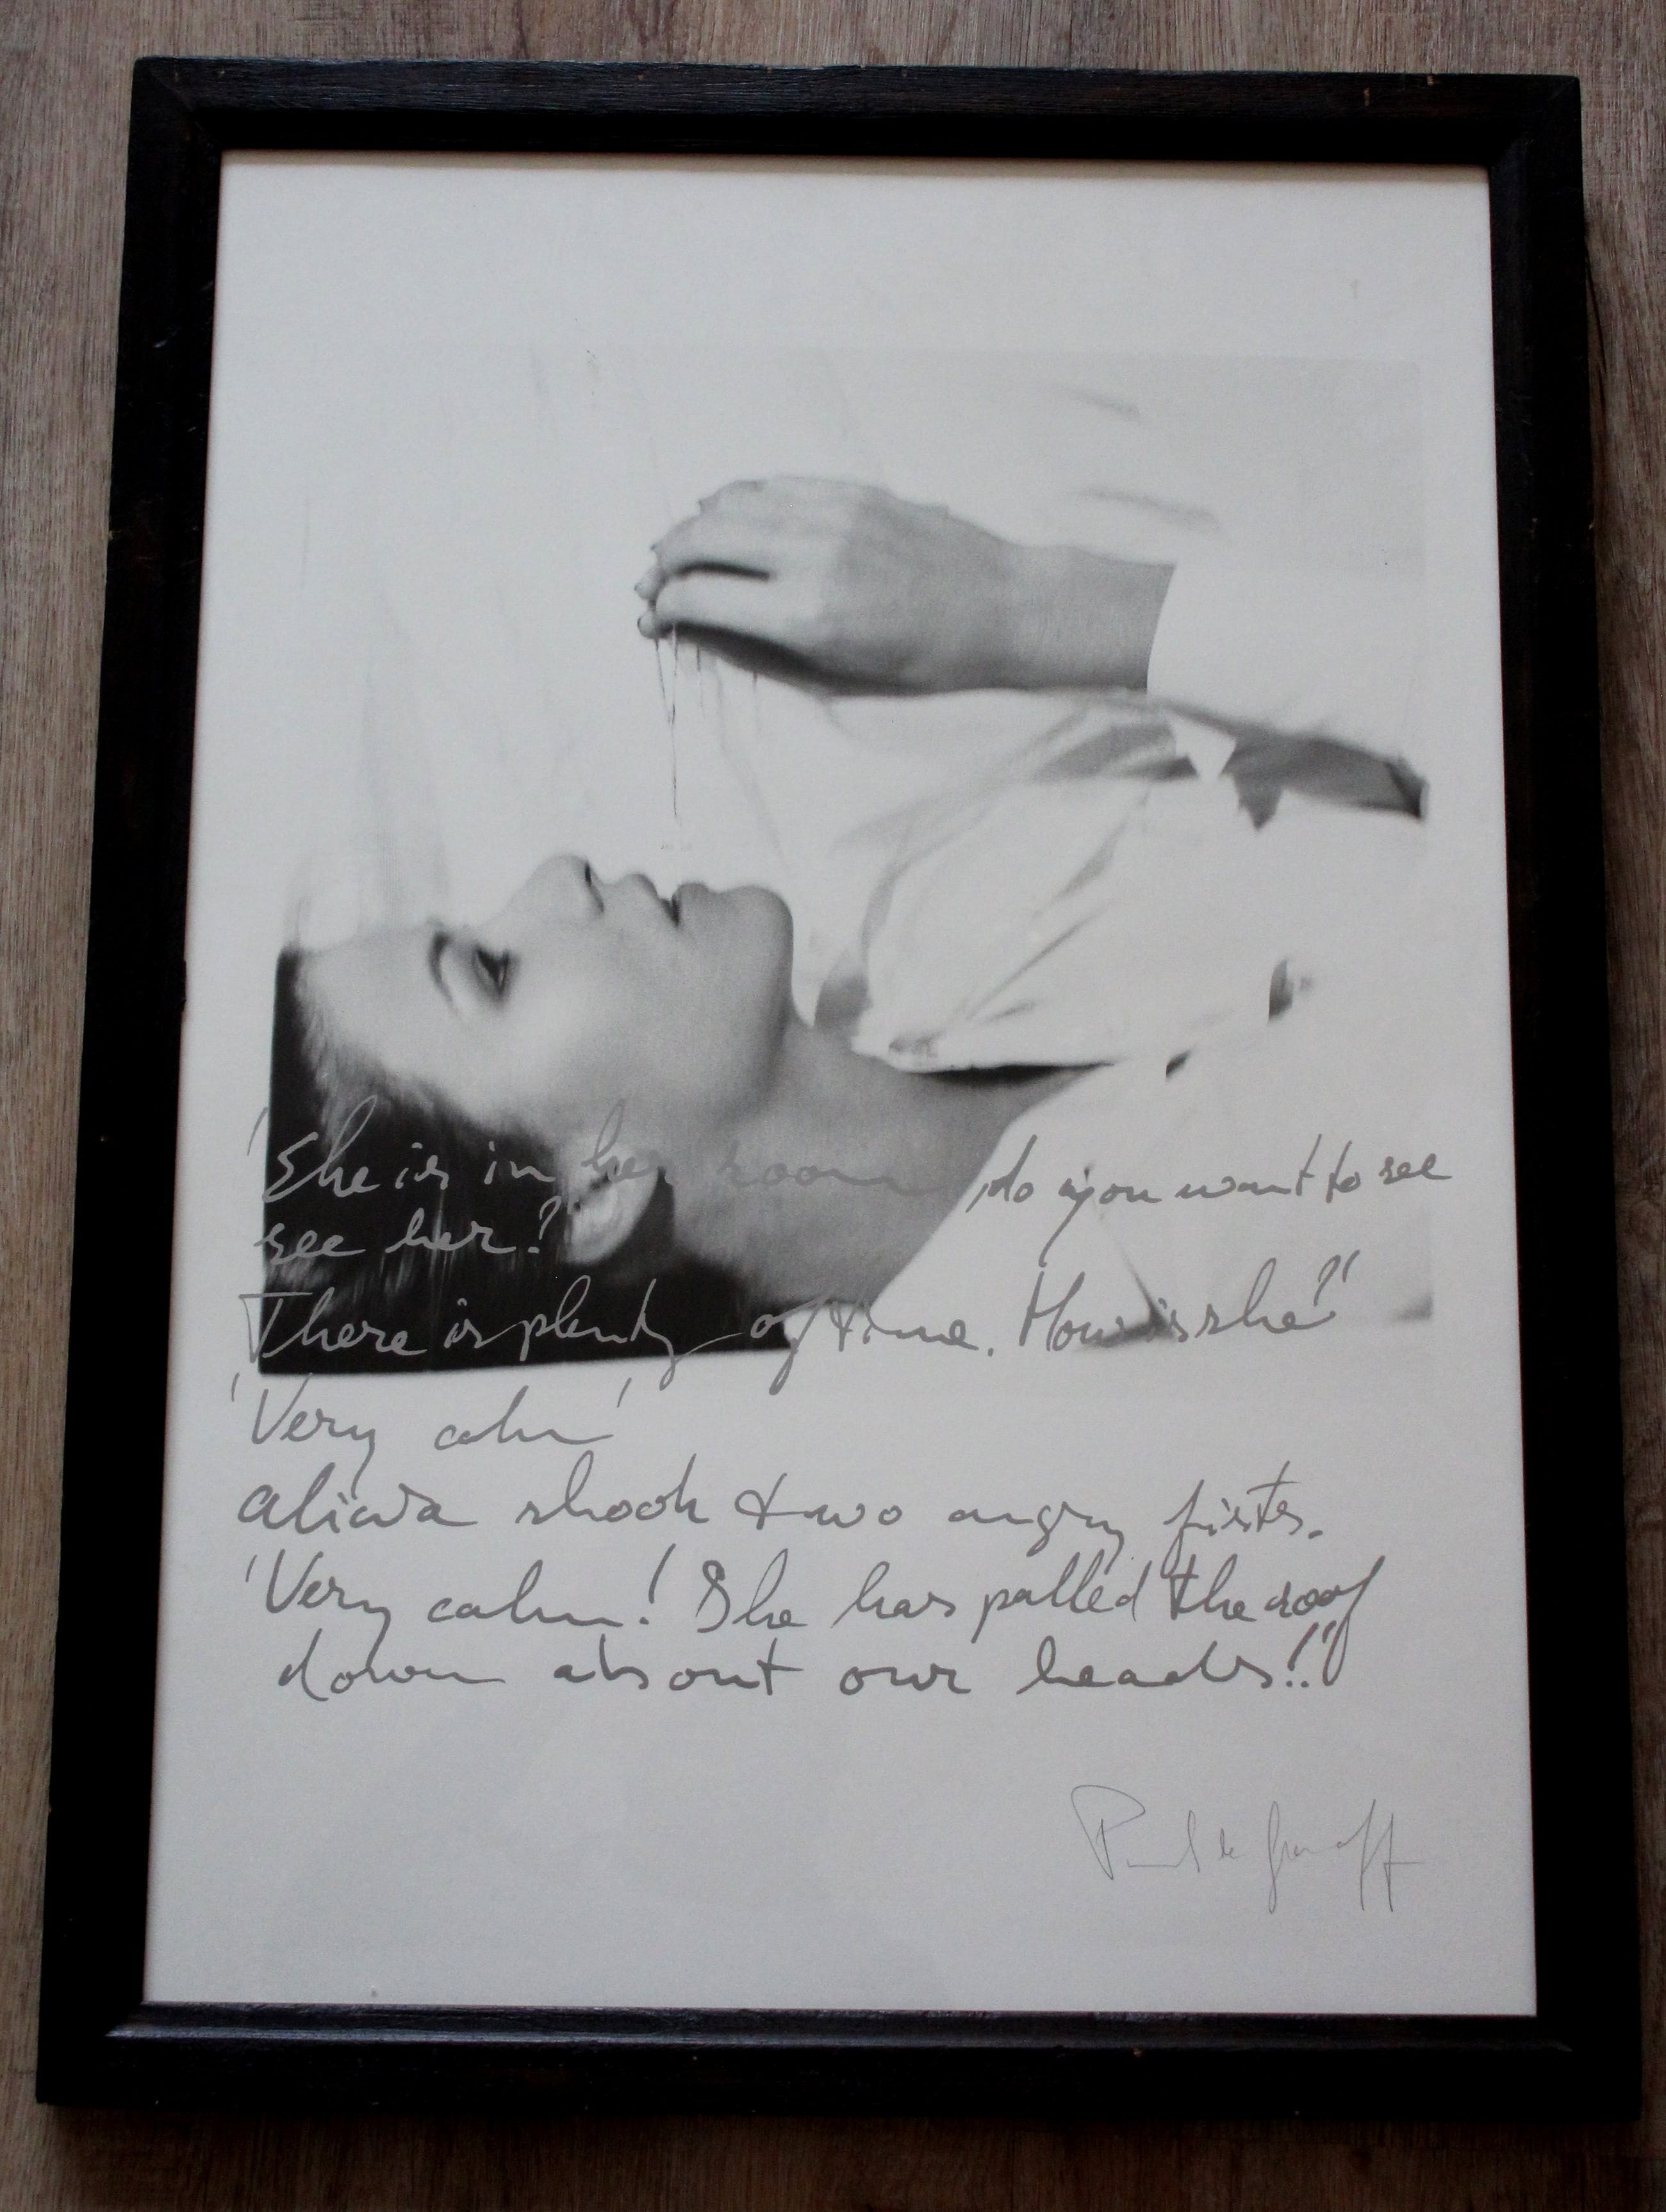 'She is in her room, do you want to see
see her?'
There is plenty of time. How is she?'
'Very calm'
alicia shook two angry fists.
'Very calm! She has palled the roof
down about our heads!!'
Paul de